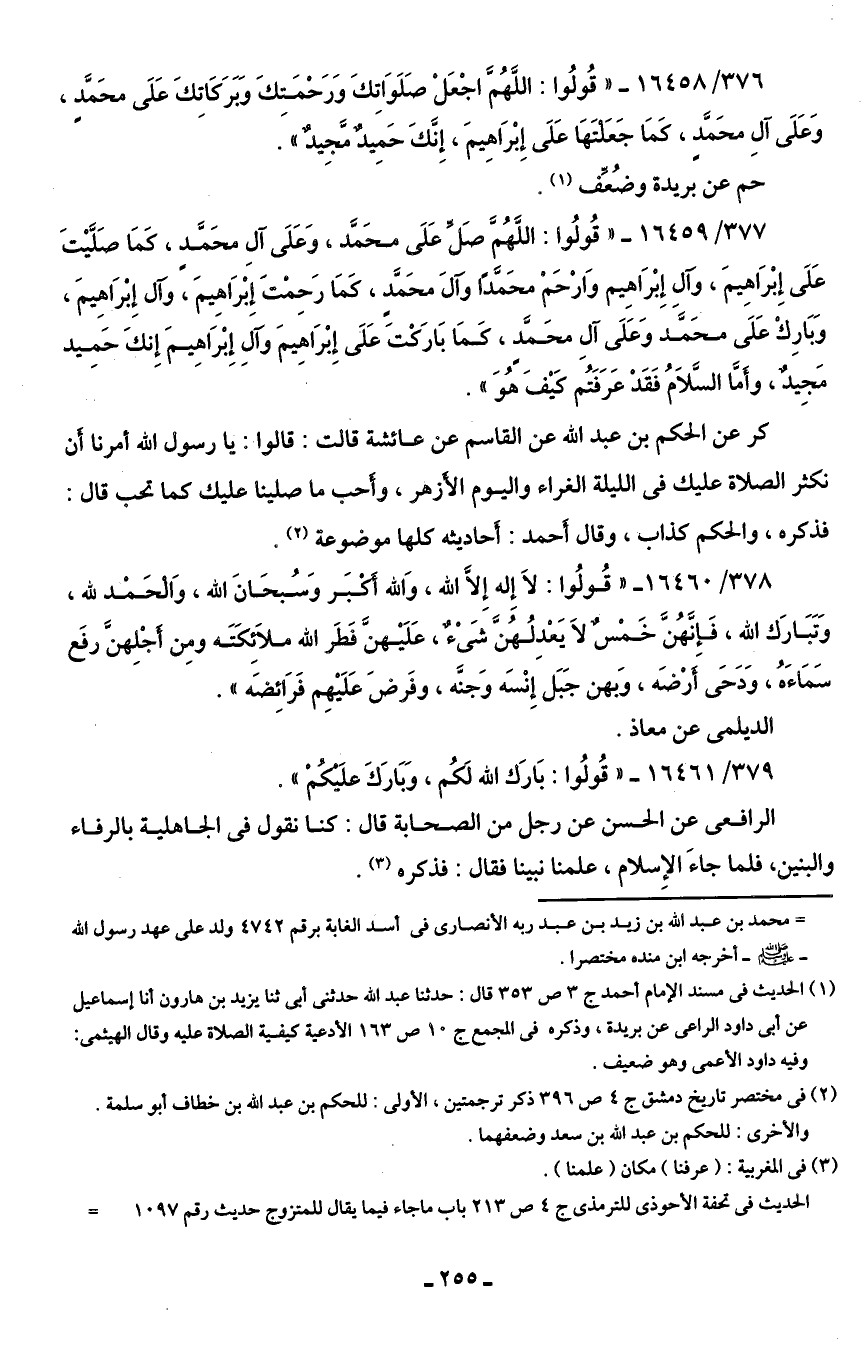 ١٦٤٥٨/٣٧٦ ـ « قُولُوا : اللَّهُمَّ اجْعَلْ صَلَوَاتِكَ وَرَحْمَتِكَ وَبَرَكَاتِكَ عَلَى محمَدٍَّ ،
وَعَلَى آلِ محمَدٍَّ ، كَمَا جَعَلْتَهَا عَلَى إِبْرَاهِيمَ ، إِنَّكَ حَمِيدٌ مَّجِيدٌ » .
حم عن بريدة وضُعِّف (١) .
١٦٤٥٩/٣٧٧ ـ « قُولُوا : اللَّهُمَّ صَلِّ عَلَى محَمَّد ، وَعَلَى آلِ محمَّدٍ ، كَمَا صَلَّيْتَ
عَلَى إِبْرَاهِيمَ ، وآلِ إِبْرَاهِيم وَارْحَمْ محَمَّدًا وآلَ محَمَّدٍ ، كَمَا رَحِمْتَ إِبْرَاهِيمَ ، وآل إِبْرَاهِيمَ ،
وَبَارِكْ عَلَى محَمَّد وَعَلَى آلِ محَمَّدٍ ، كَمَا بَارَكْتَ عَلَى إِبْرَاهِيمَ وآلِ إِبْرَاهِيمَ إِنكَ حَمِيد
مَجِيدٌ ، وأَمَّا السَّلاَمُ فَقَدْ عَرَفتُم كَيْفَ هُوَ » .
كر عن الحكم بن عبد الله عن القاسم عن عائشة قالت : قالوا : يا رسول الله أمرنا أن
نكثر الصلاة عليك فى الليلة الغراء واليوم الأزهر ، وأحب ما صلينا عليك كما تحب قال :
فذكره ، والحكم كذاب ، وقال أحمد : أحاديثه كلها موضوعة (٢) .
١٦٤٦٠/٣٧٨ـ « قُولُوا : لاَ إله إلاَّ الله ، وَالله أَكْبَر وَسُبحَانَ الله ، وَالْحَمْد لله ،
وَتَبَارَك الله ، فَإِنَّهُنَّ خَمْسٌ لاَ يَعْدِلُهُنَّ شَىْءٌ ، عَلَيْهنَّ فَطَر الله ملاَئكَتَه ومِن أَجْلِهنَّ رفَع
سَمَاءَهُ ، وَدَحَى أَرْضَه ، وَبهن جَبَل إِنْسَه وَجنَّه ، وفَرضَ عَلَيْهِم فَرَائضَه » .
الديلمى عن معاذ .
١٦٤٦١/٣٧٩ ـ « قُولُوا : بَارَك الله لَكُم ، وَبَارَكَ علَيْكُمْ » .
الرافعى عن الحسن عن رجل من الصحابة قال : كنا نقول فى الجاهلية بالرفاء
والبنين، فلما جاءَ الإسلام ، علمنا نبينا فقال : فذكره (٣) .
= محمد بن عبد الله بن زيد بن عبد ربه الأنصارى فى أسد الغابة برقم ٤٧٤٢ ولد على عهد رسول الله
- ﷺ - أخرجه ابن منده مختصرا .
(١) الحديث فى مسند الإمام أحمد ج ٣ ص ٣٥٣ قال : حدثنا عبد الله حدثنى أبى ثنا يزيد بن هارون أنا إسماعيل
عن أبى داود الراعى عن بريدة ، وذكره فى المجمع ج ١٠ ص ١٦٣ الأدعية كيفية الصلاة عليه وقال الهيثمى:
وفيه داود الأعمى وهو ضعيف .
(٢) فى مختصر تاريخ دمشق ج ٤ ص ٣٩٦ ذكر ترجمتين ، الأولى : للحكم بن عبد الله بن خطاف أبو سلمة .
والأخرى : للحكم بن عبد الله بن سعد وضعفهما .
(٣) فى المغربية : ( عرفنا ) مكان ( علمنا ) .
الحديث فى تحفة الأحوذى للترمذى ج ٤ ص ٢١٣ باب ماجاء فيما يقال للمتزوج حديث رقم ١٠٩٧ =
ـ ٢٥٥ ـ